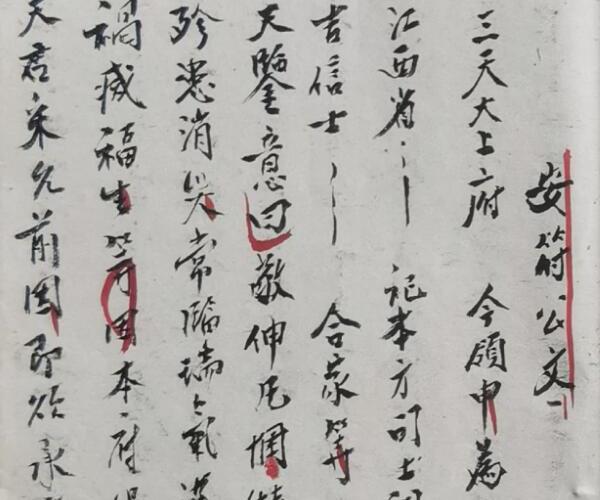 安符公文
三天大上府 今領申為
江西省 祀本方司土
吉信士 合家等
天鑒意曰敬伸凡悃
殄患消灾常臨瑞氣
禍滅福生等因本府
天君案允前因即給承